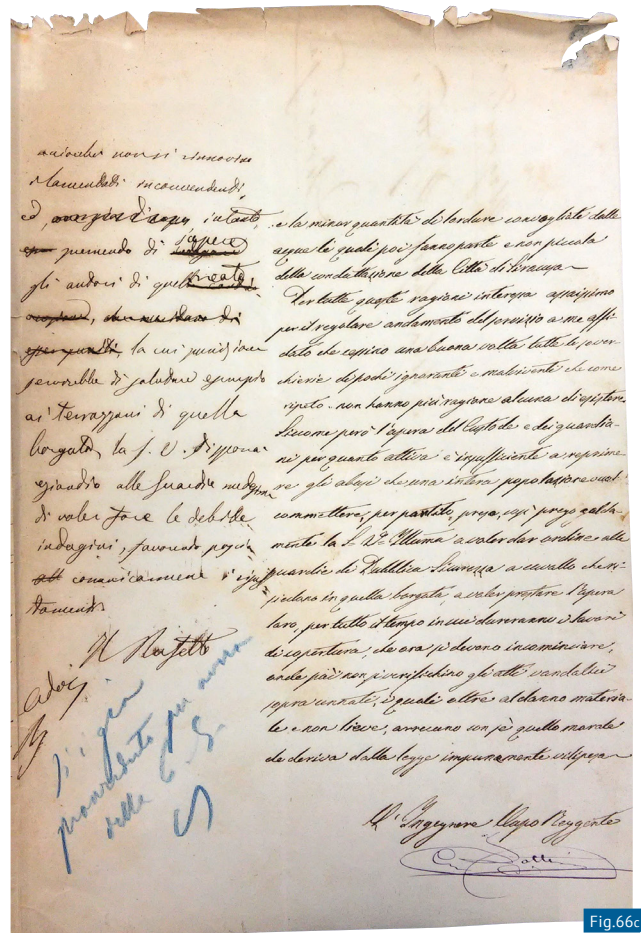 acciocchè non si rinnovino
i lamentati inconvenienti,
ed, intanto,
premendo di sapere
gli autori di quel reato
la cui punizione
servirebbe di salutare esempio
ai terrazzani di quella
borgata, la S. V. disponga
eziandio alle Guardie medesime
di voler fare le debite
indagini, favorendo poscia
comunicarmene i risul
tamenti
Il Prefetto
Si è già
provveduto per mezzo
della
e la minor quantità di lordure convogliate dalle
acque le quali poi fanno parte e non piccola
della condottazione della Città di Siracusa
Per tutte queste ragioni interessa assaissimo
per il regolare andamento del servizio a me affi
dato che cessino una buona volta tutte le sover
chierie di pochi ignoranti e malviventi che come
ripeto non hanno più ragione alcuna di esistere
Siccome però l'opera del Custode e dei guardia-
ni per quanto attiva è insufficiente a reprime
re gli abusi che una intera popolazione vuol
commettere, per partito preso, così prego calda
mente la S. Va Illma a voler dar ordine alle
guardie di Pubblica Sicurezza a cavallo che ri-
siedono in quella borgata, a voler prestare l'opera
loro, per tutto il tempo in cui dureranno i lavori
di copertura, che ora si devono incominciare,
onde poi non si verifichino gli atti vandalici
sopra cennati, i quali oltre al danno materia-
le e non lieve, arrecano con sè quello morale
che deriva dalla legge impunemente vilipesa
L'Ingegnere Capo Reggente
Fig.66c